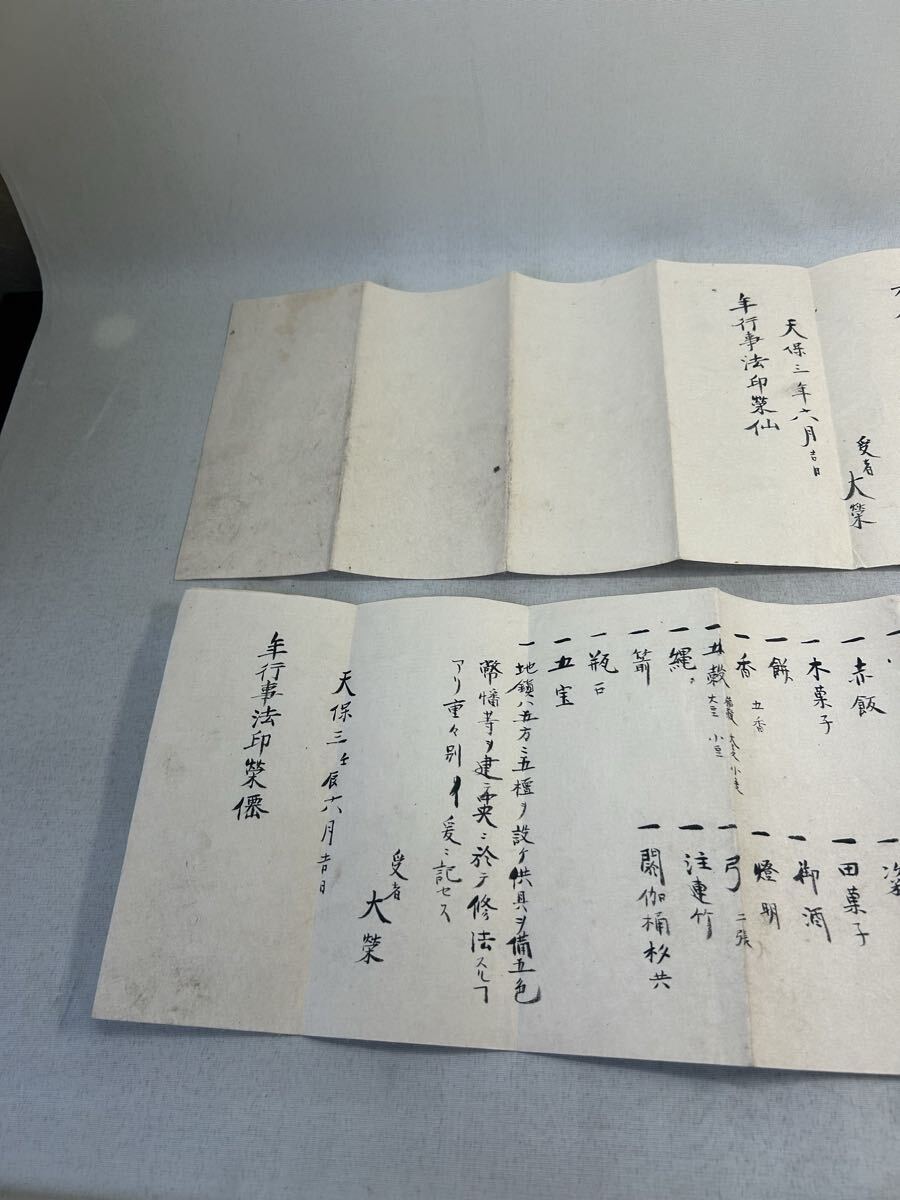 受者 大榮
天保三年六月吉日
年行事法印榮仙
一赤飯
一田菓子
一木菓子
一御酒
一餅
一燈明
一香 五香
一弓 二張
一五穀 大豆 小豆
一注連竹
一縄
一閼伽桶杓共
一箭
一瓶
一五宝
一地鎮ハ五方ニ五檀ヲ設ケ供具ヲ備五色
幣幡等ヲ建中央ニ於テ修法スルヿ
アリ重々別 爰ニ記セス
受者 大榮
天保三壬辰六月吉日
年行事法印榮僊